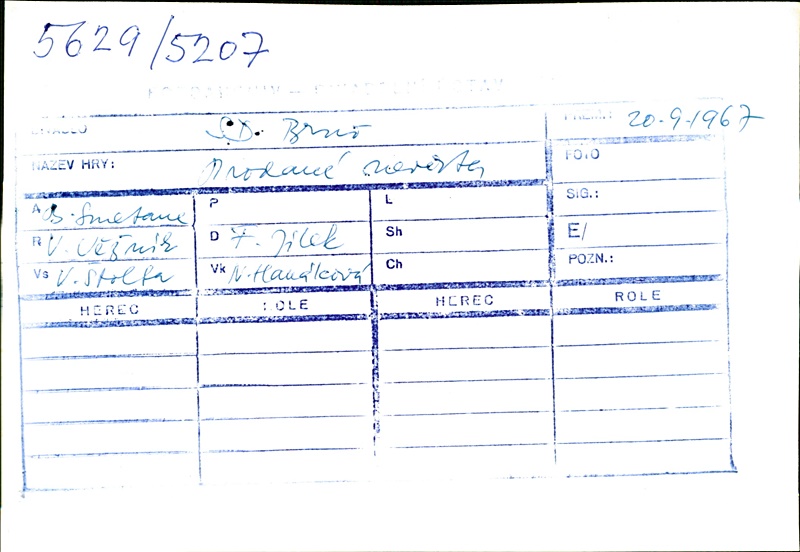 5629/5207
DIVADLO S.D. Brno PREM.: 20.9.1967
NÁZEV HRY: Prodaná nevěsta FOTO
A B. Smetana P L SIG.:
R V. Věžník D F. Jílek Sh E/
Vs V. Štolfa Vk N. Hanáková Ch POZN.:
HEREC ROLE HEREC ROLE